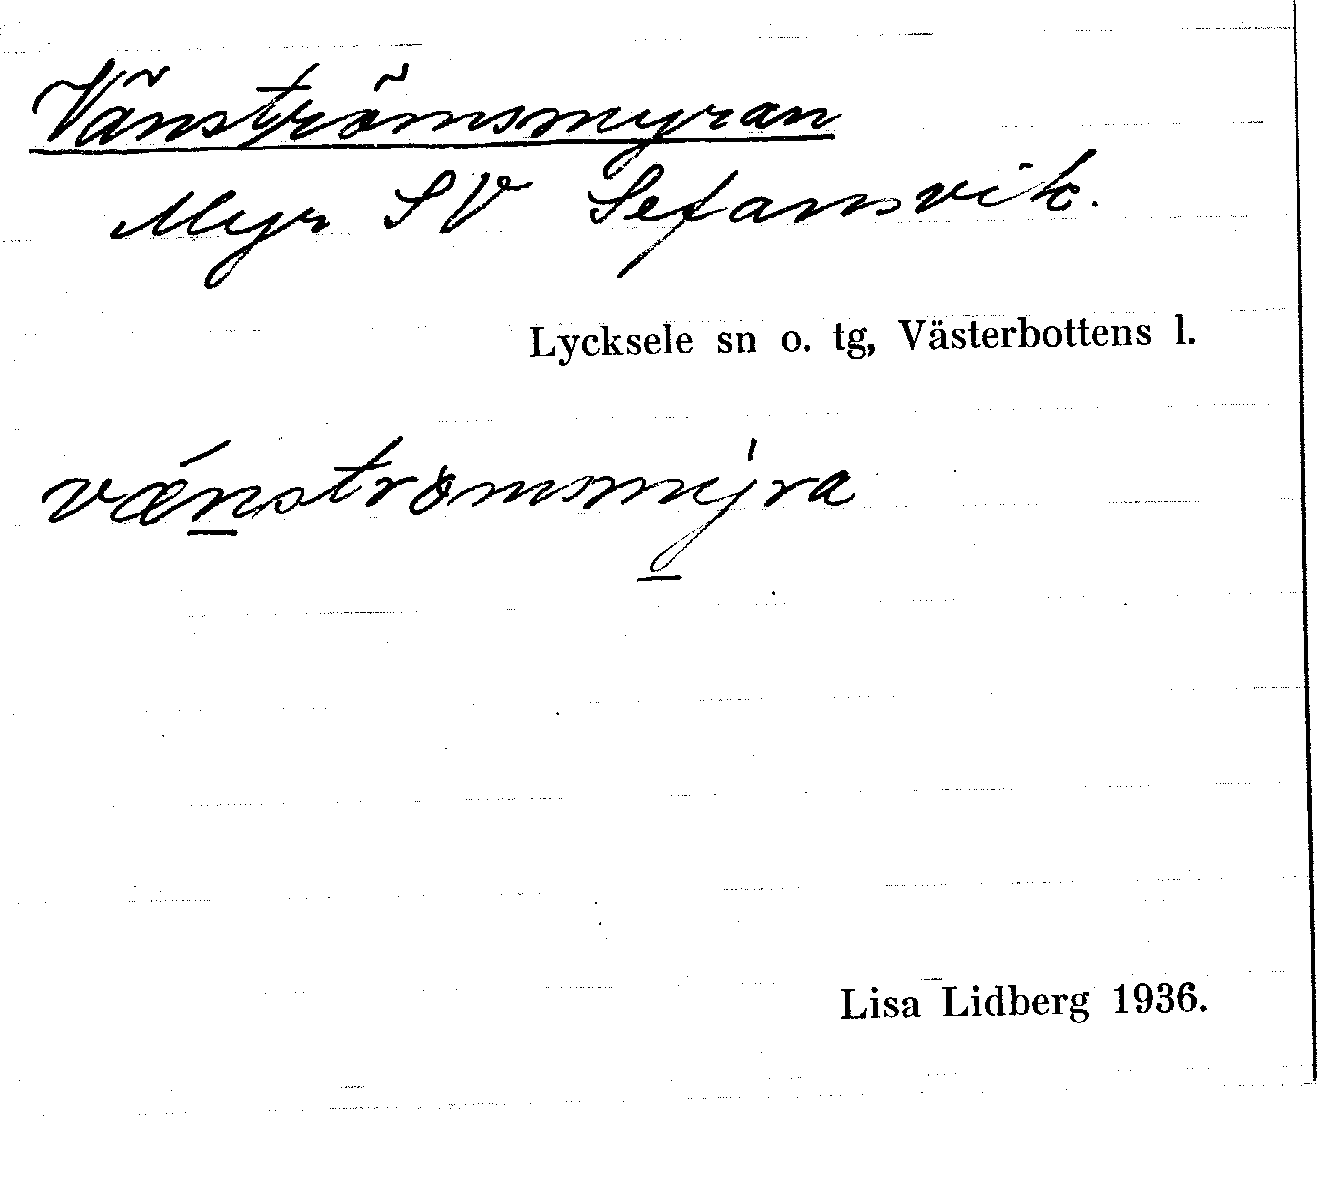 Vänströmsmyran
Myr SV Sefansvik.
Lycksele sn o. tg, Västerbottens l.
vǽnstromsmýra
Lisa Lidberg 1936.